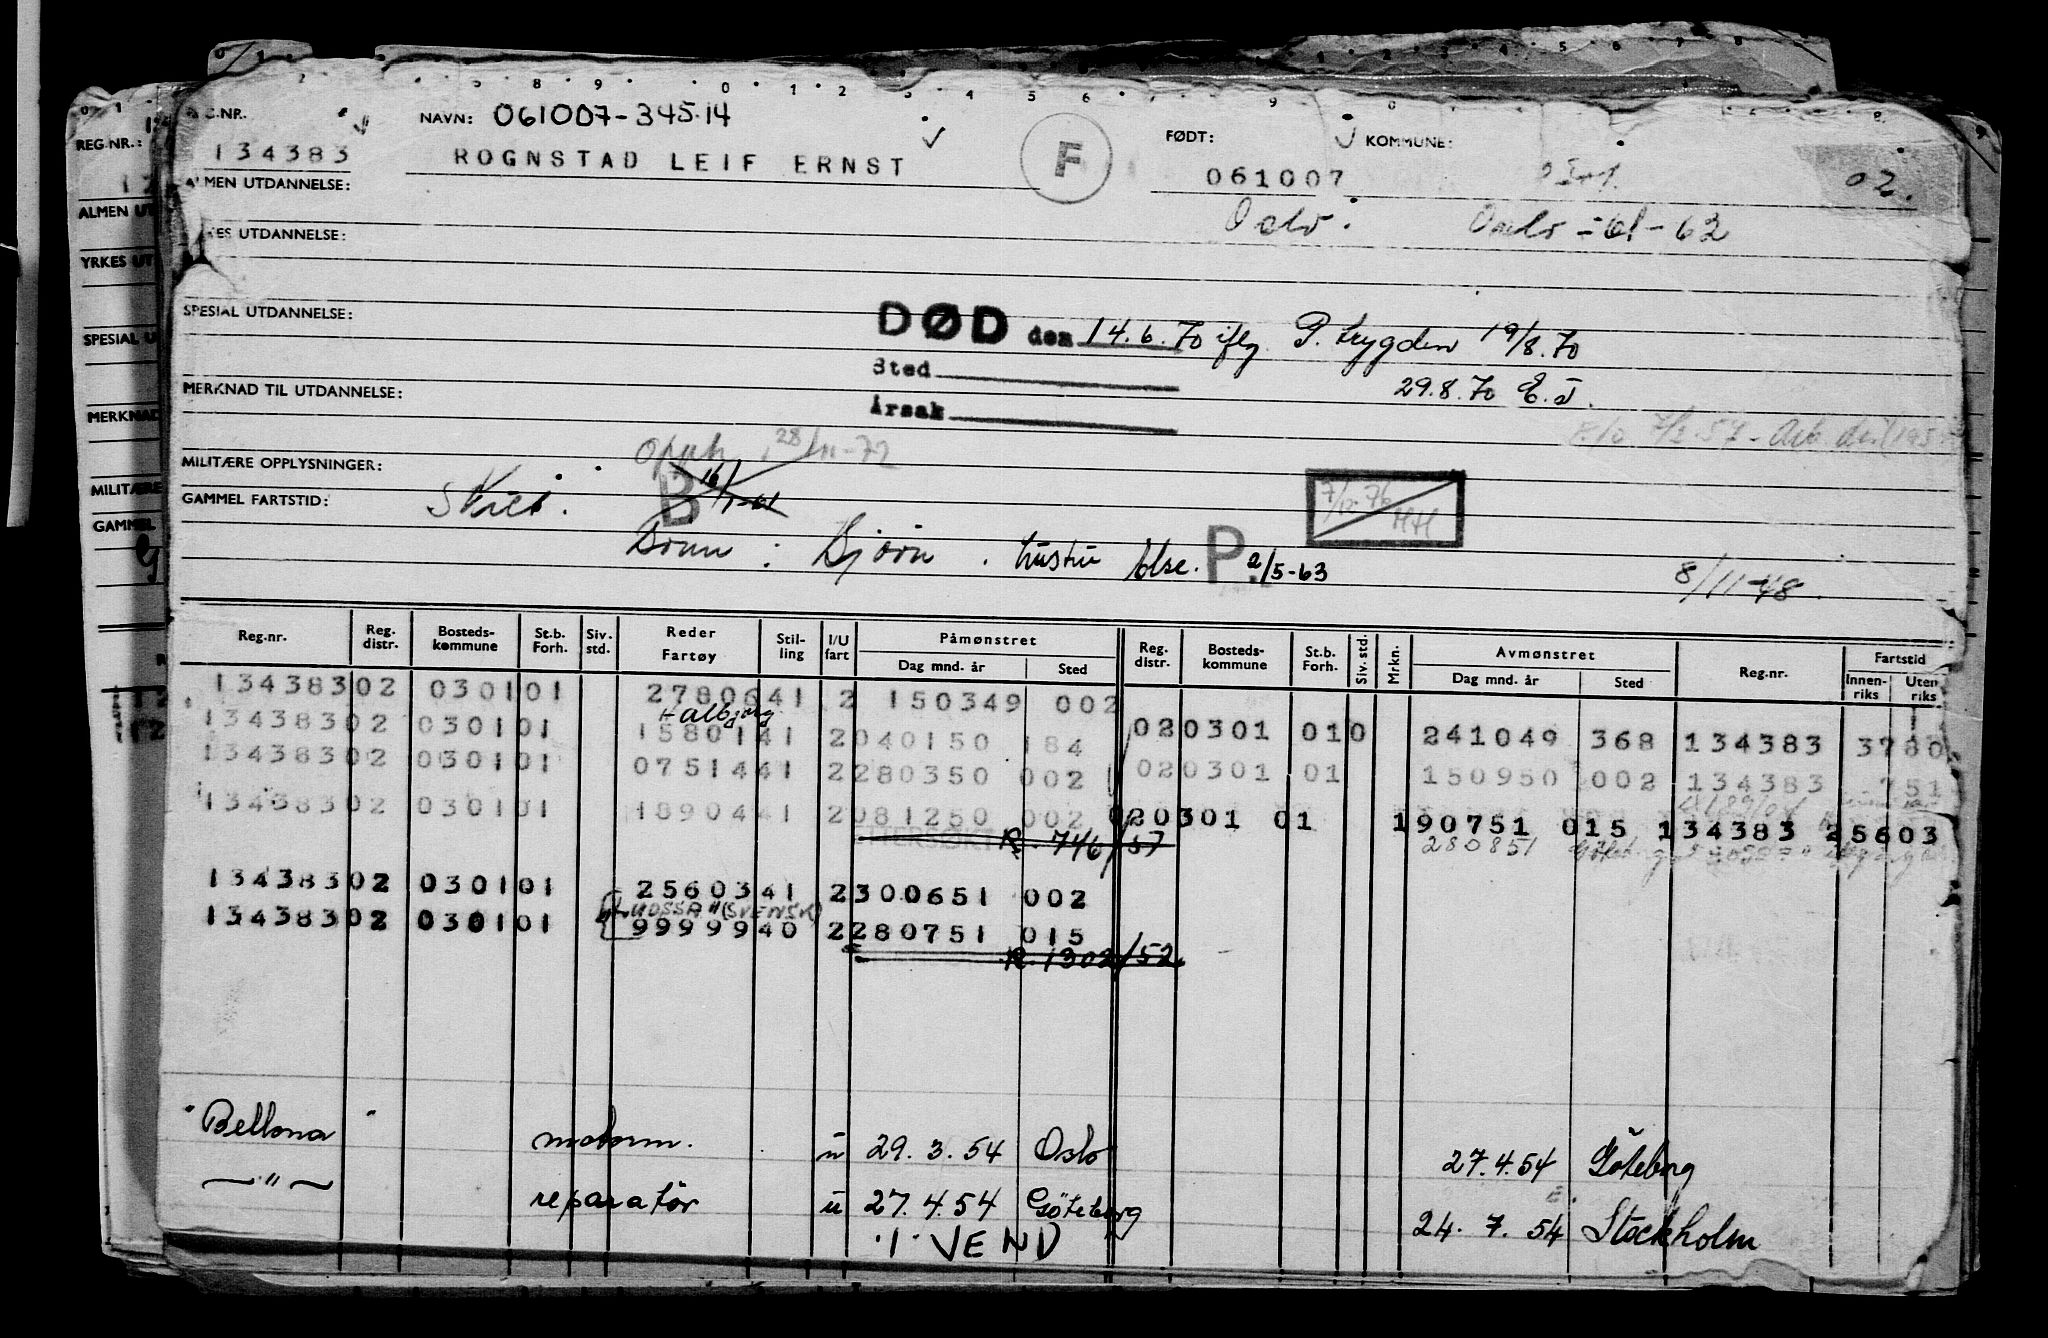 REG.NR.: NAVN: 061007-345.14 FØDT: KOMMUNE:
134383 ROGNSTAD LEIF ERNST F 061007 02.
ALMEN UTDANNELSE: Oslo Oslo -61-63
YRKES UTDANNELSE:
SPESIAL UTDANNELSE: DØD den 14.6.70 iflg P. trygden 19/8.70
Sted 29.8.70 E.J.
MERKNAD TIL UTDANNELSE: Årsak
Opph. 28/11-72
MILITÆRE OPPLYSNINGER:
GAMMEL FARTSTID: Skilt. B 7/12-76 HH
Barn: Bjørn. hustru Else. P. 2/5-63 8/11-48.
Reg.nr. Reg. distr. Bosteds-kommune St.b. Forh. Siv. std. Reder Fartøy Stil-ling I/U fart Påmønstret Dag mnd. år Sted Reg. distr. Bosteds-kommune St.b. Forh. Siv. std. Mrkn. Avmønstret Dag mnd. år Sted Reg.nr. Fartstid Innen-riks Uten riks
134383 02 0301 01 27806 41 2 150349 002
Halbjorg
134383 02 0301 01 15801 41 2 040150 184 02 0301 01 0 241049 368 134383 3780
134383 02 0301 01 07514 41 2 280350 002 02 0301 01 150950 002 134383 751
134383 02 0301 01 18904 41 2 081250 002 02 0301 01 190751 015 134383 25603
R. 746/57 280851
134383 02 0301 01 25603 41 2 300651 002
"MOSSA" (SVENSK)
134383 02 0301 01 99999 40 2 280751 015
R. 1302/52
"Bellona" motorm. u 29.3.54 Oslo 27.4.54 Göteborg
—"— reparatör u 27.4.54 Göteborg 24.7.54 Stockholm
VEND